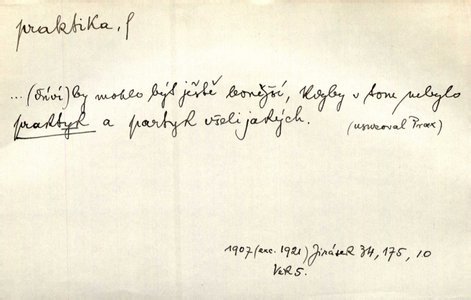 praktika, f
...(dříví) by mohlo být ještě lacnější, kdyby v tom nebylo
praktyk a partyk všelijakých. (usuzoval Prax)
1907 (exc. 1921) Jirásek 34, 175, 10